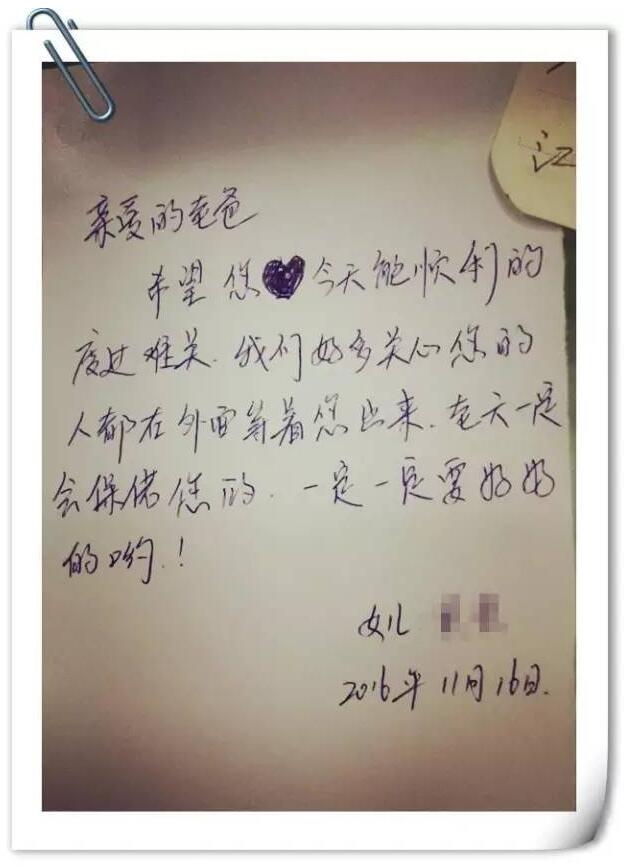 亲爱的老爸
希望您今天能顺利的
度过难关.我们好多关心您的
人都在外面等着您出来.老天一定
会保佬您的.一定一定要好好
的哟.!
女儿
2016年11月16日.
江